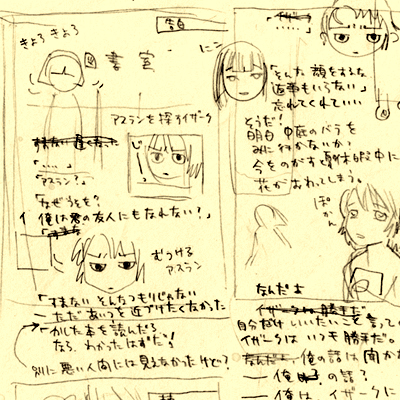 告白
きょろ きょろ
書室
アスランを探すイザーク
すまない 遅くなった
「……」
「アスラン?」
じっ
「なぜうそを?
俺は君の友人にもなれない?」
むつける
アスラン
「すまない そんなつもりじゃない
ただ あいつを近づけたくなかった
かした本を読んだろ
なら、わかったはずだ!
別に悪い人間には見えなかったけど?
イザーク
「……」
にこ
「そんな顔をするな
返事もいらない」
忘れてくれていい
そうだ!
明日 中庭のバラを
みに行かないか?
今をのがすと 休暇中に
花がおわってしまう。
ぽかん
なんだよ
イザークは勝手だ
自分だけ いいたいこと言って
イザークは いつも勝手だ。
なんだよ 俺の話は聞か
俺の話?
俺は、イザークに